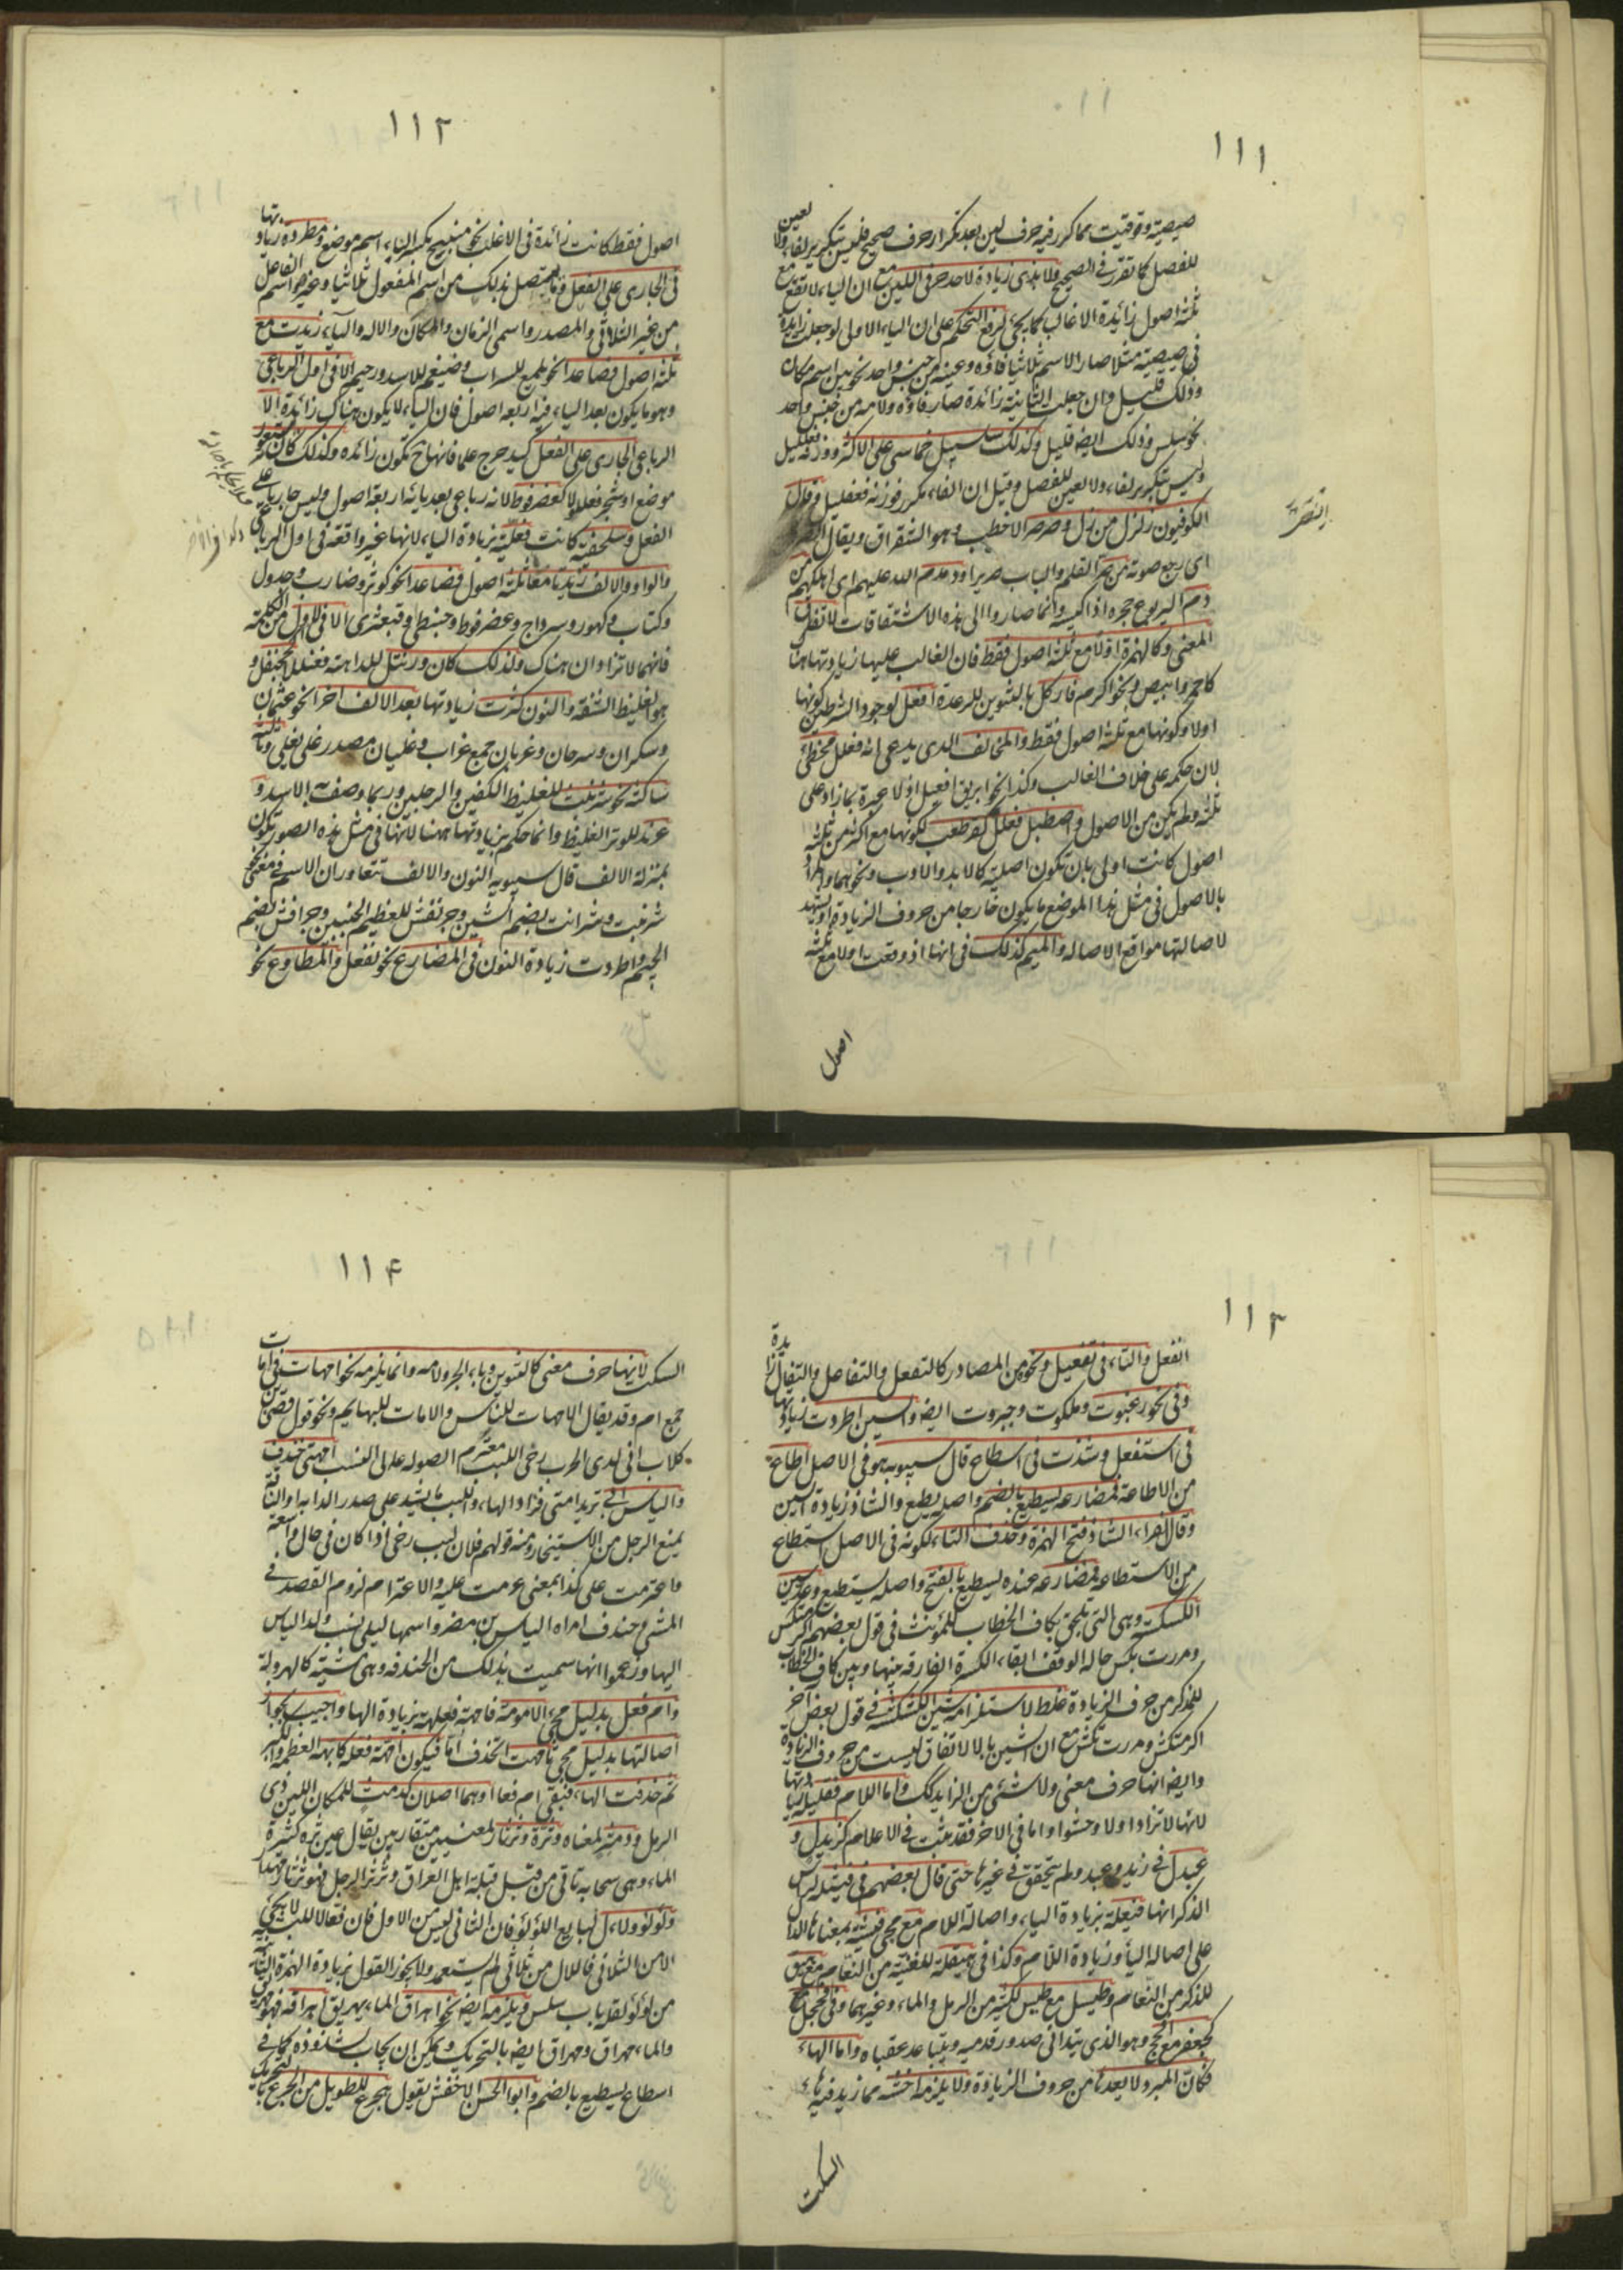 ١١١
صيصية وقوقيت مما كرر فيه حرف لين بعد تكرار حرف صحيح فليس بتكرير لفاء ولا لعين
للفصل كما تقرر في الصحيح ولا بذي زيادة لاحد حرفي اللين مع ان الياء لا تقع مع
ثلثة اصول زائدة الا غالب كما يجئ لرفع التحكم على ان الياء الاول لو جعلت زائدة
في صيصية مثلا صار الاسم ثلاثيا فاؤه وعينه من جنس واحد نحو يين اسم مكان
وذلك قليل وان جعلت الثانية زائدة صار فاؤه ولامه من جنس واحد
نحو سلس وذلك ايضه قليل وكذلك سلسبيل خماسي على الاكثر ووزنه فعلليل
وليس بتكرير لفاء ولا لعين للفصل وقيل ان الفاء مكرر فوزنه فعفليل وقال
الكوفيون زلزل من زل وصرصر الاخطب وهو الشقراق ويقال الصرد
اى رجع صوته من صر القلم والباب صريرا ودمدم الله عليهم اى اهلكهم من
دم اليربوع جحره اذا كبسه وانما صاروا الى هذه الاشتقاقات لاتفاق
المعنى وكالهمزة اولا مع ثلثة اصول فقط فان الغالب عليها زيادتها هنا
كاحمر وابيض ونحو اكرم فافكل بالتنوين للرعدة افعل لوجود الشرطين كونها
اولا وكونها مع ثلثة اصول فقط والمخالف الذى يدعى انه فعلل مخطئ
لان حكمه على خلاف الغالب وكذا نحو ابريق افعيل اذ لا عبرة بما زاد على
ثلثة ولم يكن من الاصول واصطبل فعلل كقرطعب لكونها مع اكثر من ثلثة
اصول كانت اولى بان تكون اصلية كالابد والاوب ونحوهما والمراد
بالاصول في مثل هذا الموضع ما يكون خارجا من حروف الزيادة او يشهد
لاصالتها مواقع الاصاله والميم كذلك في انها اذ وقعت اولا مع ثلثة
اصول
١١٢
اصول فقط كانت زائدة في الاغلب نحو منبج بكسر الباء اسم موضع ومطردة زيادتها
في الجارى على الفعل وما يتصل بذلك من اسم المفعول ثلاثيا وغيره واسم الفاعل
من غير الثلاثي والمصدر واسمى الزمان والمكان والاله والياء زيدت مع
ثلثة اصول فصاعدا نحو يلمع للسراب وضيغم للاسد ورحيم الا في اول الرباعى
وهو ما يكون بعد الياء فيه اربعه اصول فان الياء لا يكون هناك زائدة الا
الرباعى الجارى على الفعل كيدحرج علما فانها ح تكون زائده وكذلك كان يستعور
موضع او شجر فعللولا كعضرفوط لانه رباعى بعد يائه اربعة اصول وليس جاريا على
الفعل وسلحفيه كانت فعلية بزيادة الياء لانها غير واقعة في اول الرباعى
والواو والالف زيدتا مع ثلثة اصول فصاعدا نحو كوثر وضارب وجدول
وكتاب وكنهور وسرداح وعضرفوط وحبنطى وقبعثرى الا في الاول من الكلمة
فانهما لا تزادان هناك ولذلك كان ورنتل للداهية فعنللا كجحنفل و
هو الغليظ الشفة والنون كثرت زيادتها بعد الالف اخرا نحو عثمان
وسكران وسرحان وغربان جمع غراب وغليان مصدر غلى يغلى وثالثة
ساكنة نحو شرنبث للغليظ الكفين والرجلين وربما وصف به الاسد و
عرند للوتر الغليظ وانما حكم بزيادتها ههنا لانها في مثل هذه الصور تكون
بمنزلة الالف قال سيبويه النون والالف تتعاوران الاسم في معنى نحو
شرنبث وشرابث بضم الشين وجرنفش للعظيم الجنبين وجرافش بضم
الجيم واطردت زيادة النون في المضارع نحو نفعل والمطاوع نحو
١١٣
انفعل والتاء في تفعيل ونحو من المصادر كالتفعل والتفاعل والتفعال زائدة
وفي نحو رغبوت وملكوت وجبروت ايضه والسين اطردت زيادتها
في استفعل وشذت في اسطاع قال سيبويه هو في الاصل اطاع
من الاطاعة فمضارعه يسطيع بالضم واصله يطيع والشاذ زيادة السين
وقال الفراء الشاذ فتح الهمزة وحذف التاء لكونه في الاصل استطاع
من الاستطاعه فمضارعه عنده يسطيع بالفتح واصله يستطيع وعد سين
الكسكسة وهى التى تلحق بكاف الخطاب للمؤنث في قول بعضهم اكرمتكس
ومررت بكس حاله الوقف ابقاء الكسرة الفارقه بينها وبين كاف الخطاب
للمذكر من حرف الزيادة غلط لاستلزامه شين الكشكشة في قول بعض آخر
اكرمتكش ومررت بكش مع ان الشين بالاتفاق ليست من حروف الزيادة
وايضه انها حرف معنى ولا شئ من الزايد كك واما اللام فقليله زيادتها
لانها لا تزاد اولا وحشوا واما في الاخر فقد ثبت في الاعلام كزيدل و
عبدل في زيد وعبد ولم يتحقق في غيرها حتى قال بعضهم في فيشلة لراس
الذكر انها فيعلة بزيادة الياء واصالة اللام مع مجئ فيشة بمعناها الدال
على اصاله الياء وزيادة اللام وكذا في هيقلة للفتية من النعام مع هيق
للذكر من النعام وطيسل مع طيس للكثير من الرمل والماء وغيرهما وفي فحجل
كجعفر مع افحج وهو الذى يتدانى صدور قدميه ويتباعد عقباه واما الهاء
فكان المبرد لا يعدها من حروف الزيادة ولا يلزمه اخشه مما زيد فيه هاء
السكت
١١۴
السكت لانها حرف معنى كالتنوين وباء الجر ولامه وانما يلزمه نحو امهات في امات
جمع ام وقد يقال الامهات للناس والامات للبهايم ونحو قول قصى بن
كلاب انى لدى الحرب رخى اللبب معتزم الصوله عالى النسب امهتى خندف
والياس ابى تريد امتى فزاد الهاء واللبب ما يشد على صدر الدابه او الناقة
يمنع الرجل من الاستيخار ومنه قولهم فلان لبب رخى اذا كان في حال واسعة
واعتزمت على كذا بمعنى عزمت عليه والاعتزام لزوم القصد في
المشى وخندف امراه الياس بن مضر واسمها ليلى نسب ولد الياس
اليها وزعموا انها سميت بذلك من الخندفه وهى مشية كالهرولة
وام فعل بدليل مجئ الامومة فامهة فعلهة بزيادة الهاء واجيب بجواز
اصالتها بدليل مجئ تامهت اتخذت اما فيكون امهة فعلة كابهه العظمه والكبر
ثم حذفت الهاء فبقى ام فعا او هما اصلان كدمث للمكان اللين ذى
الرمل ودمثر لمعناه وثرة وثرثار لمعنيين متقاربين يقال عين ثره كثيرة
الماء وهى سحابه تاتى من قبل قبلة اهل العراق وثرثر الرجل فهو ثرثار مهذار
ولؤلؤ ولاءل لبايع اللؤلؤ فان الثانى ليس من الاول فان فعالا للنسب لا يجئ
الا من الثلاثى فاللال من ثلاثى لم يستعمل ولا يجوز القول بزيادة الهمزة الثانية
من لؤلؤ لقلة باب سلس ويلزمه ايضه نحو اهراق الماء يهريق اهراقة فهو مهريق
والماء مهراق ومهراق ايضه بالتحريك ويمكن ان يجاب بشذوذه كما في
اسطاع يسطيع بالضم وابو الحسن الاخفش يقول هجرع للطويل من الجرع بالتحريك